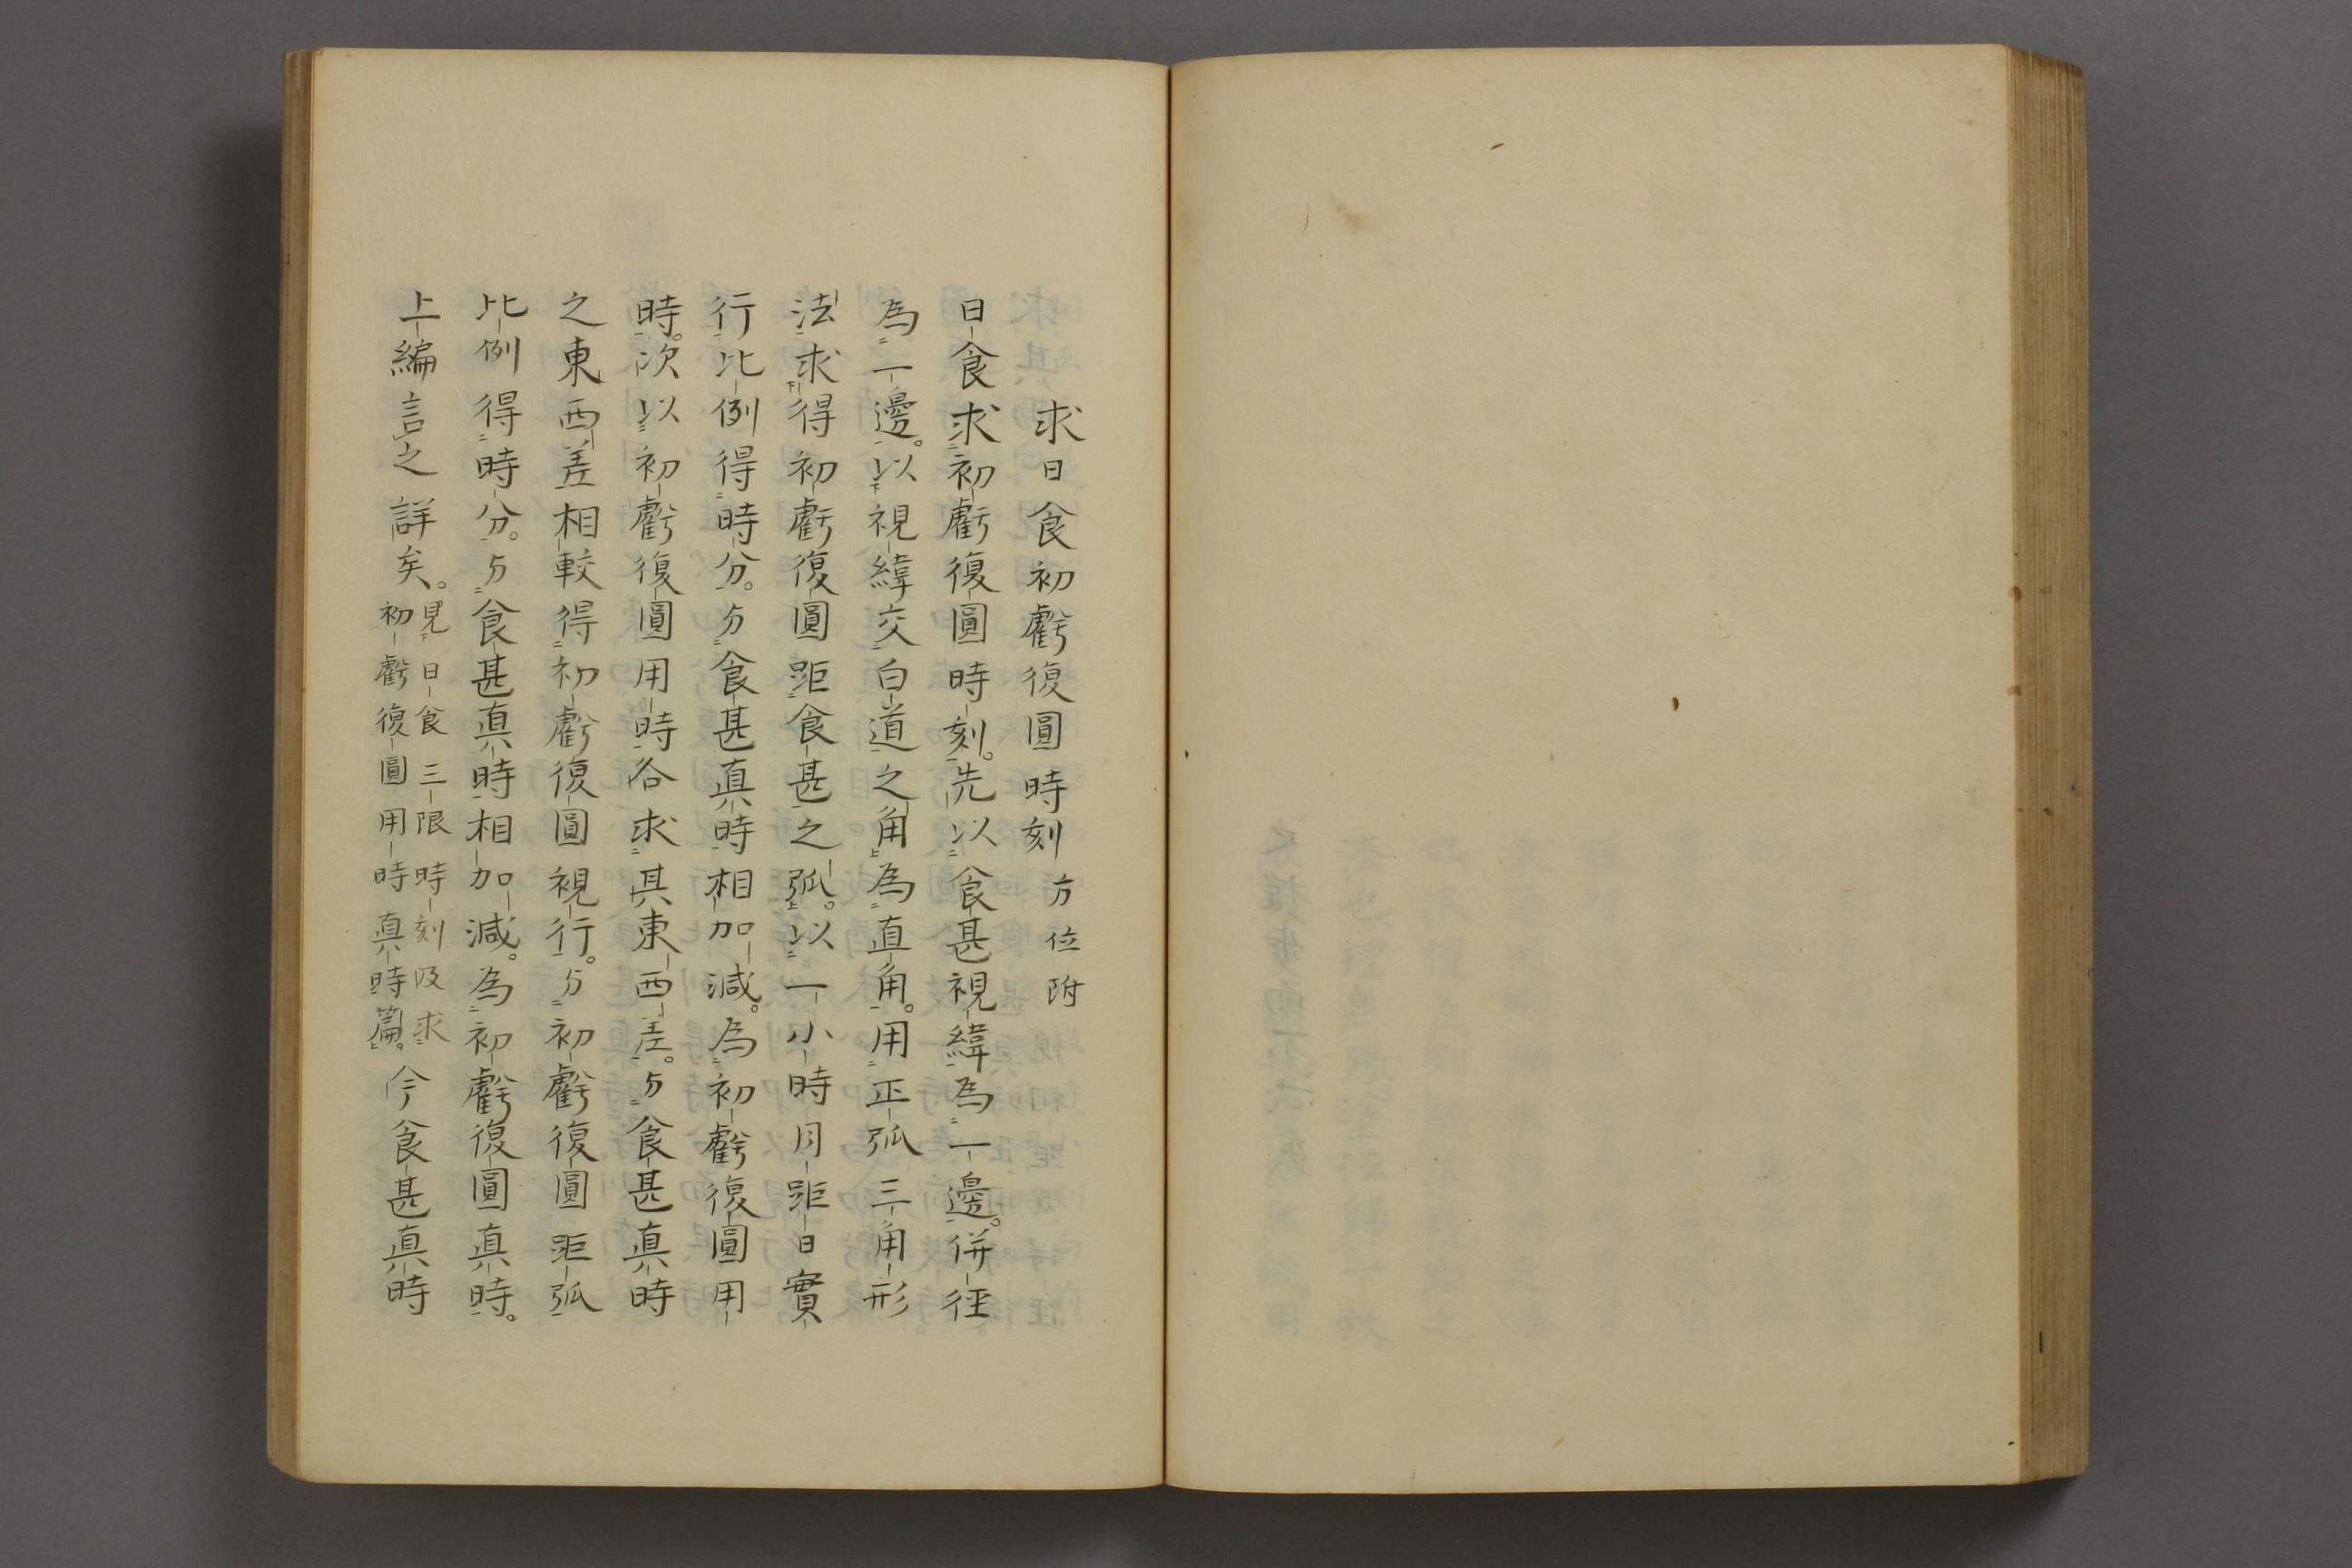 求日食初虧復圓時刻方位附
日食求初虧復圓時刻。先以食甚視緯為一邊。併徑
為一邊。以視緯交白道之角為直角。用正弧三角形
法求得初虧復圓距食甚之弧。以一小時月距日實
行比例得時分。与食甚真時相加減。為初虧復圓用
時。次以初虧復圓用時各求其東西差。与食甚真時
之東西差相較得初虧復圓視行。与初虧復圓距弧
比例得時分。与食甚真時相加減。為初虧復圓真時。
上編言之詳矣。見日食三限時刻及求初虧復圓用時真時篇。今食甚真時